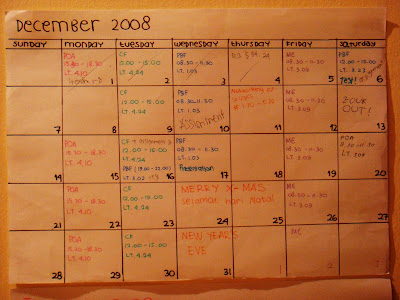 DECEMBER 2008
SUNDAY MONDAY TUESDAY WEDNESDAY THURSDAY FRIDAY SATURDAY
POA
15.30 - 18.30
LT. 4.10
1
CF
12.00 - 15.00
LT. 4.24
2
PBF
08.30 - 11.30
LT. 1.03
3
4
ME
08.30 - 11.30
LT. 3.09
5
PBF
12.00 - 15.00
Test
6
7
8
CF
12.00 - 15.00
LT. 4.24
9
PBF
08.30 - 11.30
LT. 1.03
Assignment
10
11
ME
08.30 - 11.30
LT. 3.09
12
ZOUK
OUT!
13
14
POA
15.30 - 18.30
LT. 4.10
15
CF
12.00 - 15.00
LT. 4.24
16
PBF
08.30 - 11.30
LT. 1.03
Presentation
17
18
ME
08.30 - 11.30
LT. 3.09
19
POA
LT. 3.08
20
21
POA
15.30 - 18.30
LT. 4.10
22
CF
12.00 - 15.00
LT. 4.24
23
MERRY X-MAS
Selamat Hari Natal
24
25
ME
08.30 - 11.30
LT. 3.09
26
27
28
POA
15.30 - 18.30
LT. 4.10
29
CF
12.00 - 15.00
LT. 4.24
30
NEW YEAR'S
EVE
31
1
ME
2
3